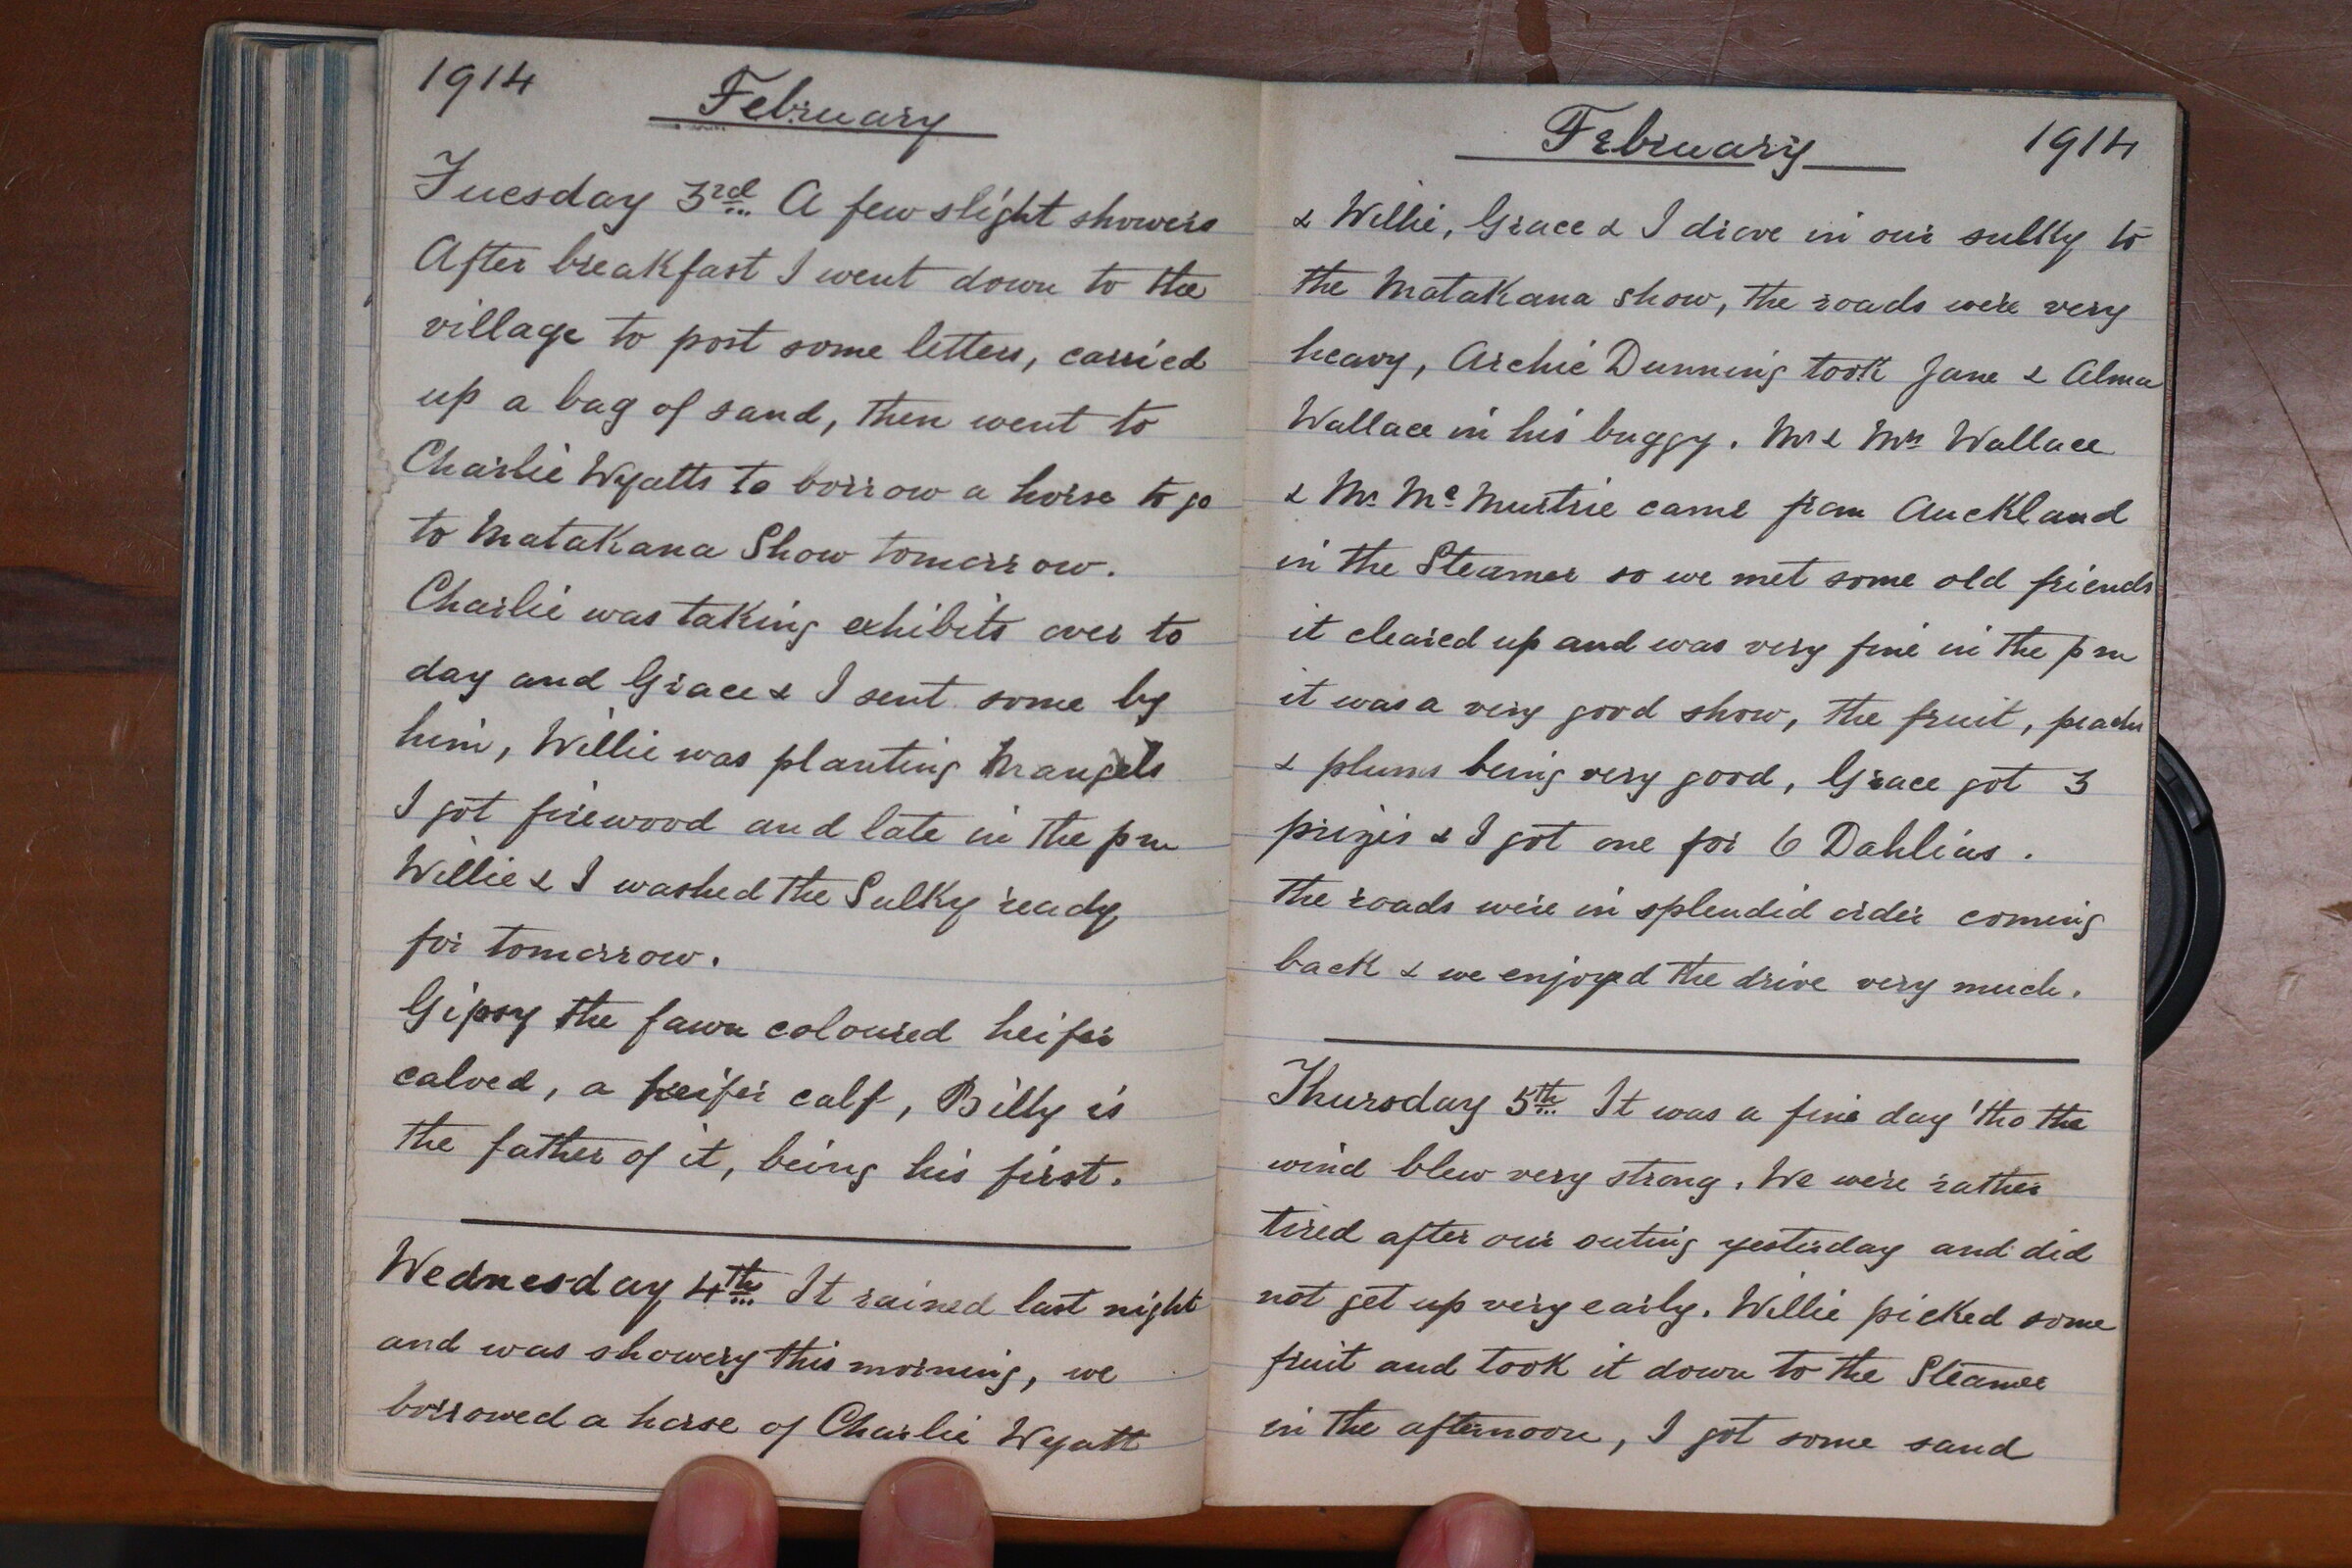 1914
February
Tuesday 3rd A few slight showers
After breakfast I went down to the
village to post some letters, carried
up a bag of sand, then went to
Charlie Wyatts to borrow a horse to go
to Matakana Show tomorrow.
Charlie was taking exhibits over to
day and Grace & I sent some by
him, Willie was planting Mangels
I got firewood and late in the pm
Willie & I washed the Sulky ready
for tomorrow.
Gipsy the fawn coloured heifer
calved, a heifer calf, Billy is
the father of it, being his first.
Wednesday 4th It rained last night
and was showery this morning, we
borrowed a horse of Charlie Wyatt
February
1914
& Willie, Grace & I drove in our sulky to
the Matakana show, the roads were very
heavy, Archie Dunning took Jane & Alma
Wallace in his buggy. Mr & Mrs Wallace
& Mr McMurtrie came from Auckland
in the Steamer so we met some old friends
it cleared up and was very fine in the pm
it was a very good show, the fruit, peaches
& plums being very good, Grace got 3
prizes & I got one for 6 Dahlias.
the roads were in splendid order coming
back & we enjoyed the drive very much.
Thursday 5th It was a fine day 'tho the
wind blew very strong. We were rather
tired after our outing yesterday and did
not get up very early. Willie picked some
fruit and took it down to the Steamer
in the afternoon, I got some sand